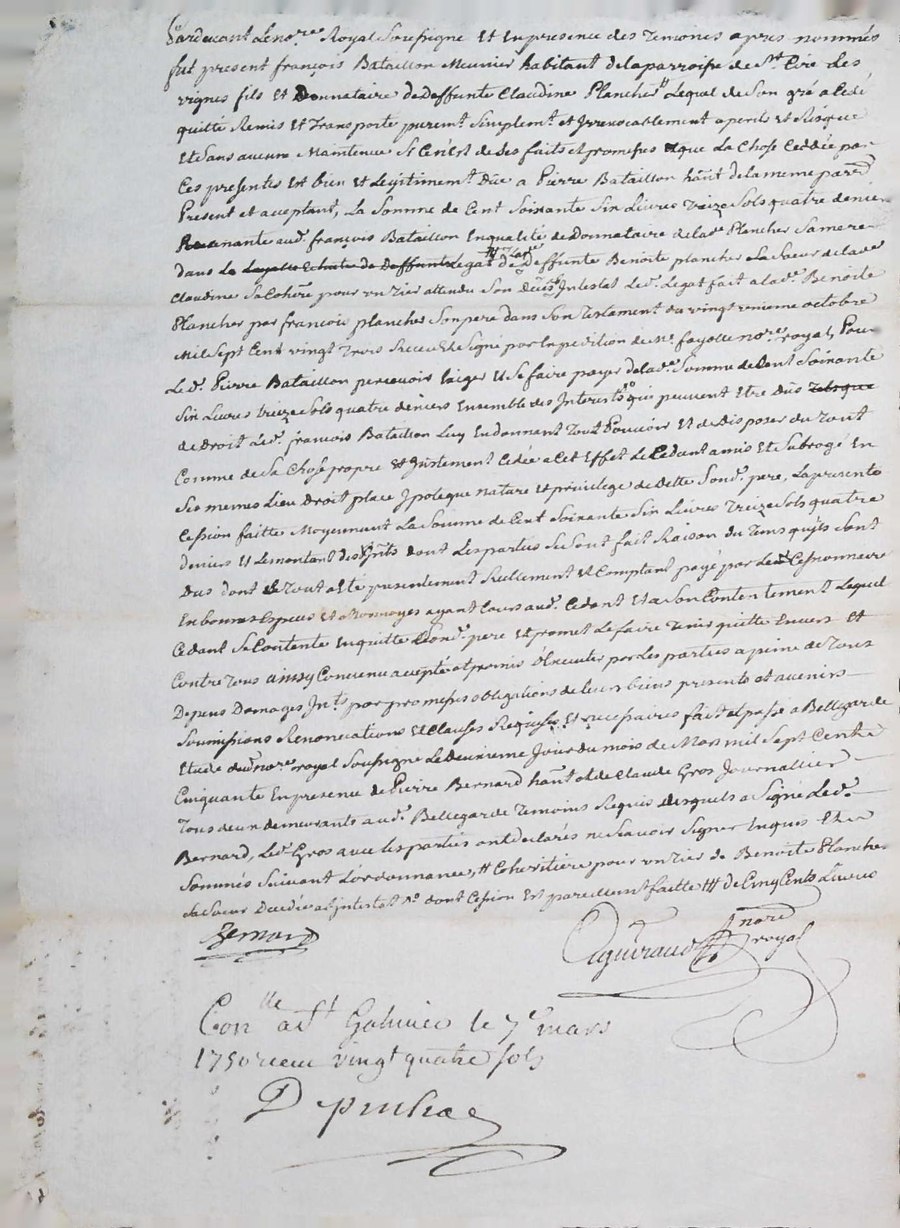 Pardevant Le no.re Royal Soussigne Et En presence des Temoins apres nommés
fut present françois Bataillon Meunier habitant de la parroisse de St Cire Les
vignes fils Et Donnataire de Deffunte Claudine Plancher Lequel de Son gré a Cedé
quitté Remis Et Transporte purem.t Simplem.t et Irrevocablement a perils Et Risque
Et Sans aucune Maintenue Si Ce n'est de Ses faits et promesses Et que La Chose Ceddée par
Ces presentes Est bien Et Legitimem.t Dûe a Pierre Bataillon han̄t de la meme parr.e
Present et aceptant, La Somme de Cent Soixante Six Livres Treize Sols quatre deniers
Revenante aud. françois Bataillon En qualité de Donnataire de lad.e Plancher Sa mere
dans Le Legat de Deffunte Benoite plancher Sa Soeur de lad.e
Claudine Sa Coher.e pour un Tier attendu Son deces Intestat Led. Legat fait a lad.e Benoite
Plancher par francois plancher Son pere dans Son Testament du vingt unieme octobre
Mil Sept Cent vingt Trois Receu Et Signé par Expedition de Me fayolle no.re royal, Pour
Le d. Pierre Bataillon percevoir Exiger Et Se faire payer de lad.e Somme de Cent Soixante
Six Livres Treize Sols quatre deniers Ensemble des Interests qui peuvent Etre dûs
de Droit Led. françois Bataillon Luy En donnant Tout Pouvoir Et de disposer du Tout
Comme de Sa Chose propre Et Justement Cedée a Cet Effet Le Cedant a mis Et Subrogé En
Ses memes Lieu Droit place Ipoteque nature Et privilege de Dette Sond. pere, La presente
Cession faitte Moyennant La Somme de Cent Soixante Six Livres Treize Sols quatre
deniers Et Le montant des Jnt.s dont Les parties Se Sont fait Raison du Tems quils Sont
Dus dont Le Tout a Eté presentement Reellement Et Comptant payé par Led. Cessionnaire
En bonnes Especes Et Monnoyes ayant Cours aud. Cedant Et a Son Contentement Lequel
Cedant Se Contente En quitte Sond. pere Et promet Le faire Tenir quitte Envers Et
Contre Tous ainsy Convenu accepté et promis d'Executer par Les parties a peine de Tous
Depens Domages Jnt.s par promesses obligations de Leurs biens presents et avenirs
Soumissions Renonciations Et Clauses Requises Et necessaires fait et passé a Bellegarde
Etude du no.re royal Soussigne Le Deuxieme Jour du mois de Mars mil Sept Cent
Cinquante En presence de Pierre Bernard han̄t et de Claude Gros Journallier
Tous deux demeurants aud. Bellegarde Temoins Requis desquels a Signé Led.
Bernard, Led. Gros avec Les parties ont declarés ne Scavoir Signer Enquis Et
Sommés Suivant L'ordonnance, # Coheritiere pour un Tier de Benoite Plancher
Sa Soeur Decedée ab intestat dont Cession Est pareillement faitte ## de Cinq Cents Livres
Bernard
no.re
royal
Con.lle a St Galmier le 7e mars
1750 receu vingt quatre sols